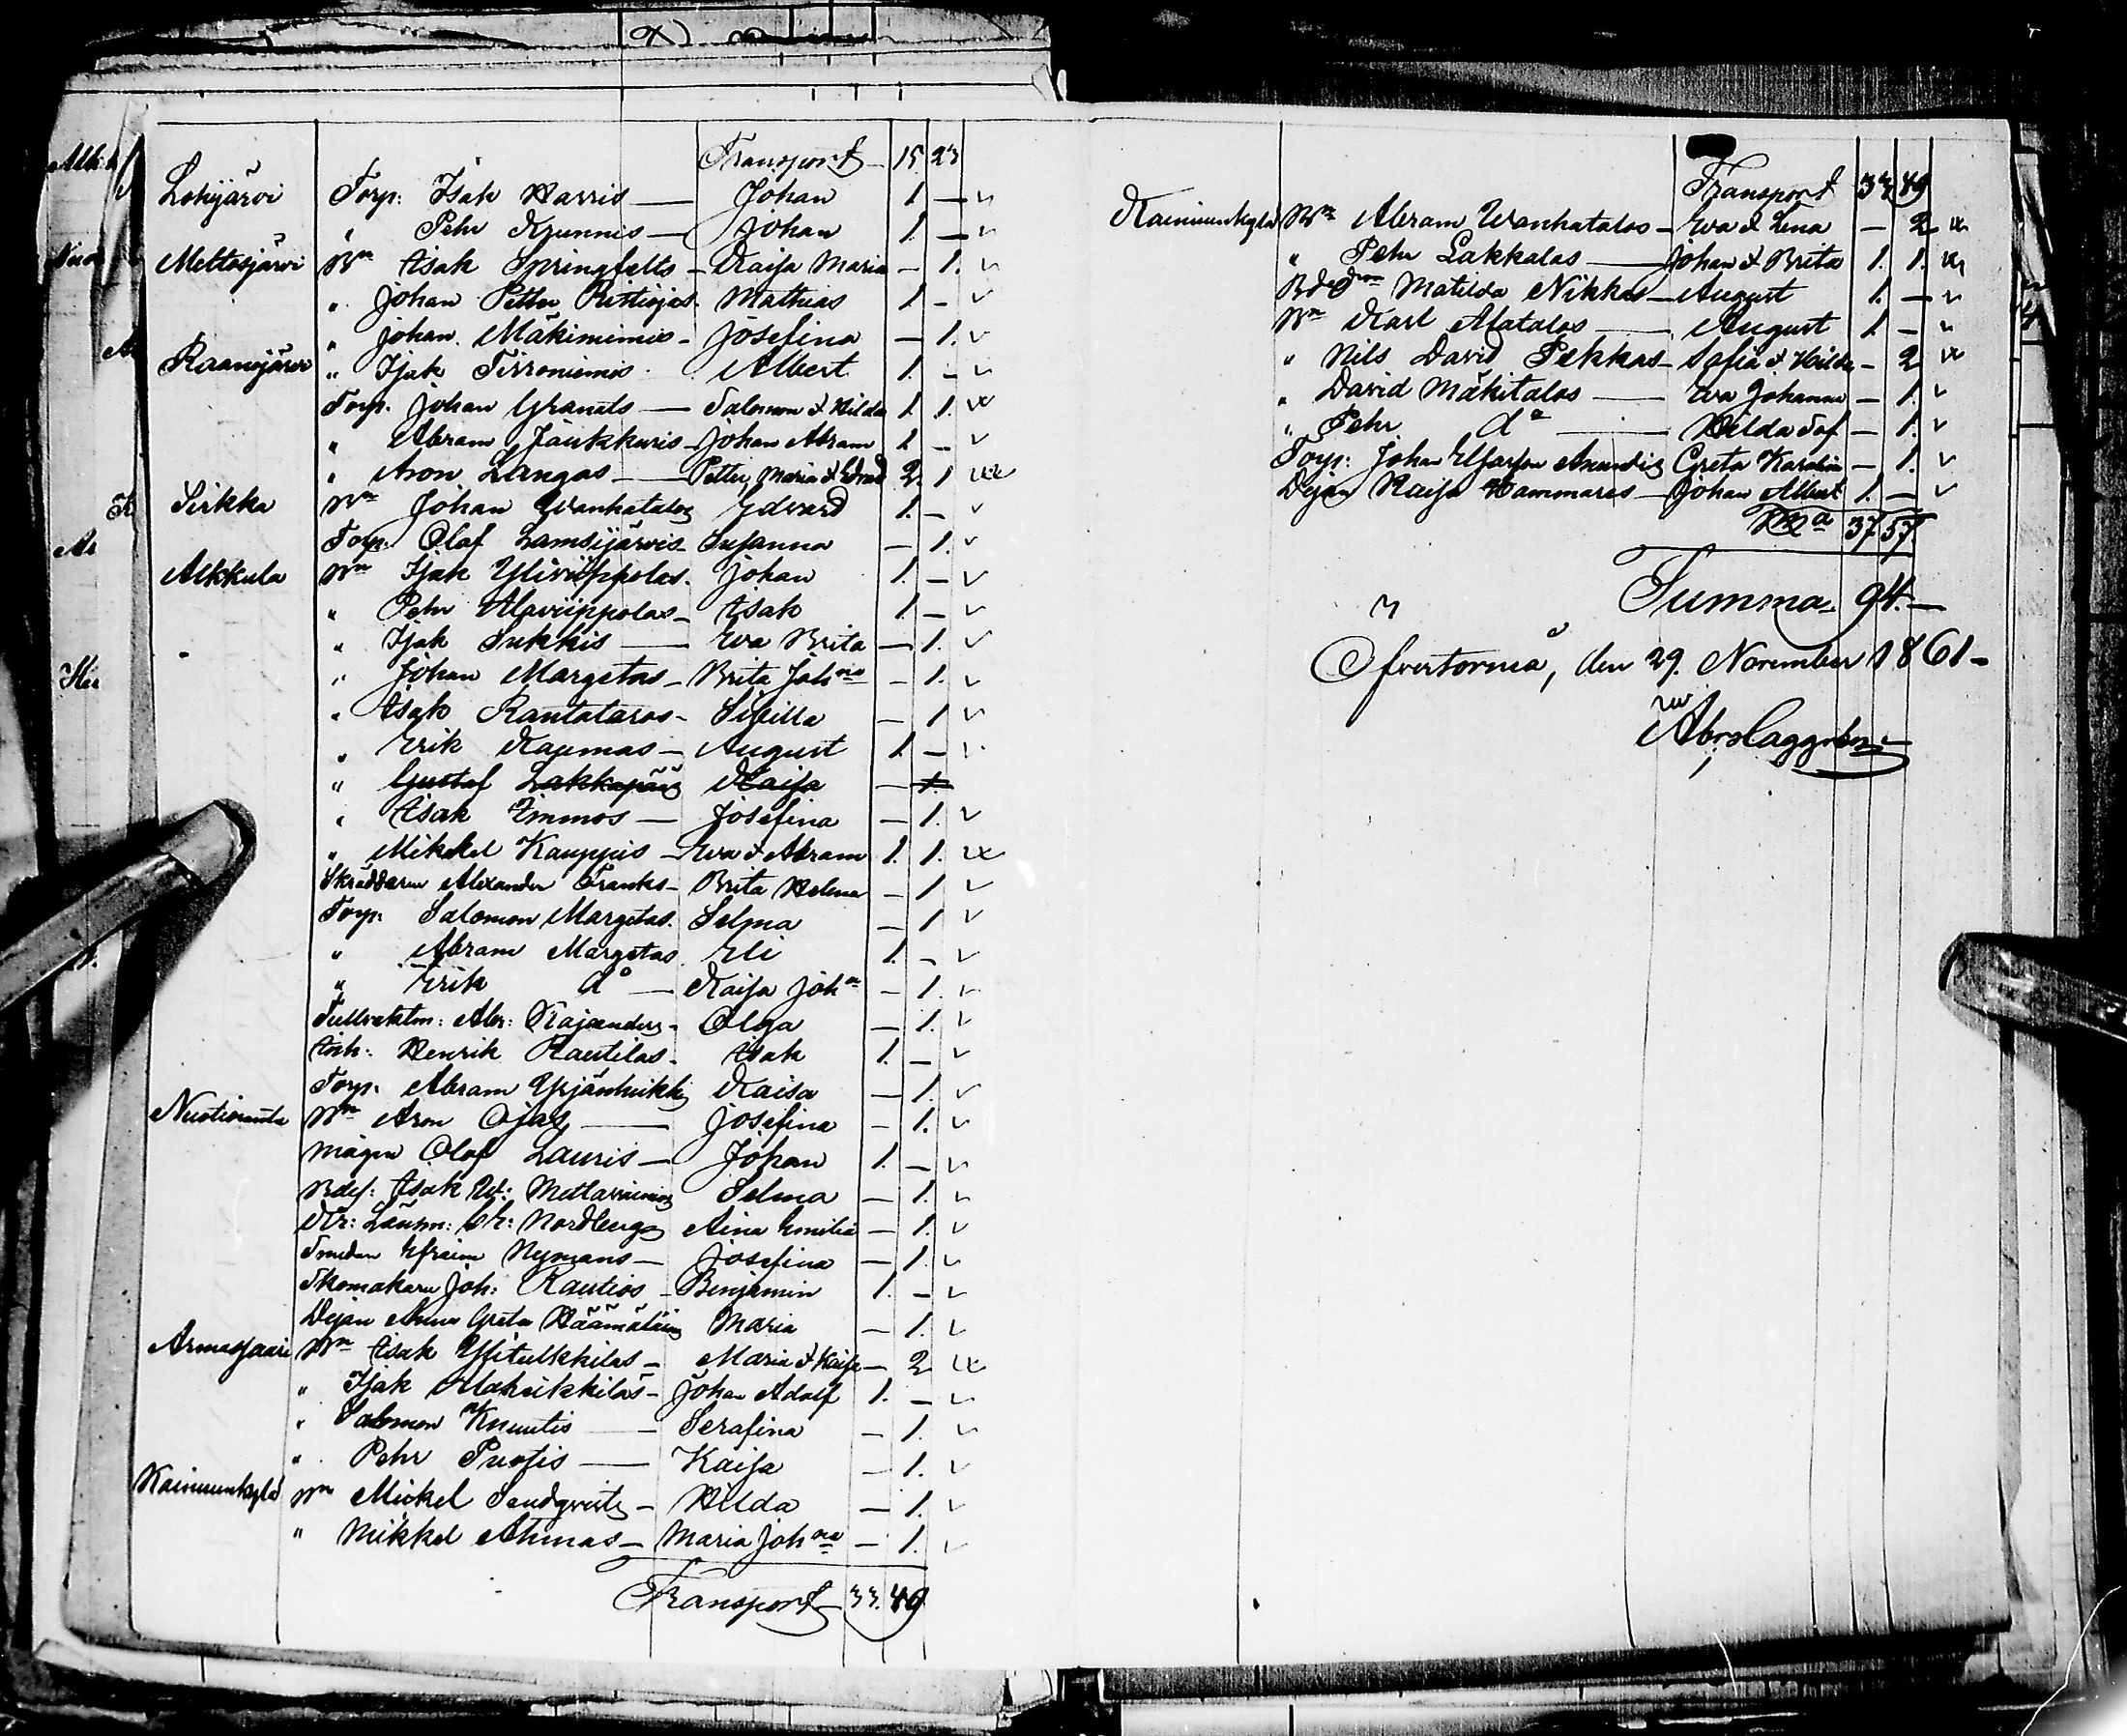 Transport 15. 23
Lohijärvi Torp: Isak Harris — Johan 1 —
" Pehr Krunnis — Johan 1. —
Meltosjärvi Bn Isak Springfelts — Kaisa Maria — 1.
" Johan Petter Ristiojas Mathias 1 —
" Johan Mäkiniemis — Josefina — 1.
Raanujärvi " Isak Tirroniemis Albert 1. —
Torp. Johan Granats — Salomon & Hilda 1. 1.
" Abram Jäukkuris — Johan Abram 1 —
" Aron Langas — Petter, Maria & Edvard 2. 1
Sirkka Bn Johan Wanhatalos Edvard 1. —
Torp. Olof Lamsijärvis — Susanna — 1.
Alkkula Bn Isak Yliviippolas. Johan 1. —
" Pehr Alaviippolas — Isak 1. —
" Isak Sukkis — Eva Brita — 1.
" Johan Margetas — Brita Johna — 1.
" Isak Rantataros — Sibilla — 1
" Erik Kaumas — August 1. —
" Gustaf Lakkapääs Kaisa — 1.
" Isak Immos — Josefina — 1.
" Mikkel Kauppis — Eva & Abram 1. 1.
Skräddaren Alexander Franks — Brita Helena — 1
Torp: Salomon Margetas. Selma — 1
" Abram Margetas Eli 1. —
" Erik do — Kaisa Johna — 1.
Tullvaktm: Abr: Kajanders — Olga — 1.
Inh: Henrik Rautilas — Isak 1. —
Torp. Abram Yrjänheikkis Kaisa — 1.
Nuotioranta Bn Aron Ojas — Josefina — 1.
Mågen Olof Lauris — Johan 1. —
Bdes: Isak Mettavainios Selma — 1.
Kr: Länsm: Nordbergs Aina Emilia — 1.
Smeden Efraim Nymans — Josefina — 1.
Skomakaren Joh: Rautios — Benjamin 1. —
Dejan Anna Greta Häämäläinens Maria — 1.
Armassaari Bn Isak Ylitulkkilas — Maria & Kaisa — 2
" Isak Alatulkkilas — Johan Adolf 1. —
" Salomon Knuutis — Serafina — 1.
" Pehr Puosis — Kaisa — 1.
Kainuunkylä Bn Mickel Sandqvists — Hilda — 1.
" Mikkel Ahmas — Maria Johna — 1.
Transport 33. 49
Transport 33 49
Kainuunkylä Bn Abram Wanhatalos — Eva & Lena — 2
" Pehr Lakkalas — Johan & Brita 1. 1.
Matilda Nikkas — August 1. —
Bn Karl Alatalos — August 1. —
" Nils David Pekkas — Sofia & Hilda — 2
" David Mäkitalos — Eva Johanna — 1.
" Pehr do — Hilda Sof — 1.
Torp: Johan Greta Karolin — 1.
Dejan Kaisa Hammares — Johan Albert 1. —
37. 57
Summa. 94. —
Öfvertorneå, den 29. November 1861 —